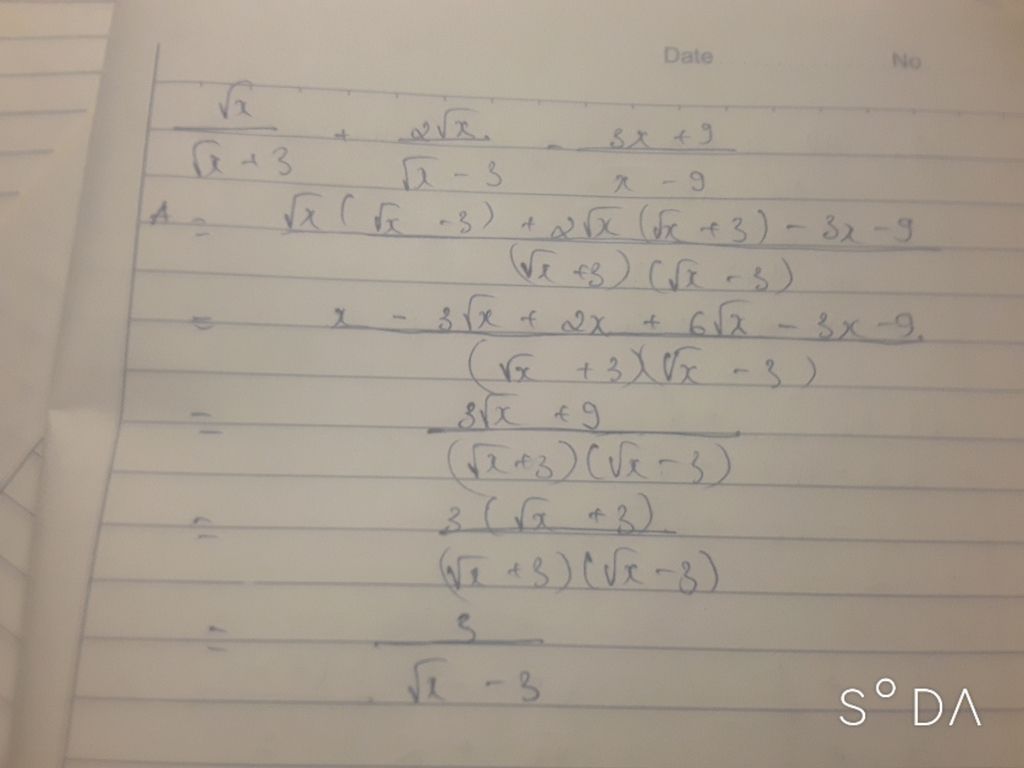 Date No
√x/(√x + 3) + 2√x/(√x - 3) - (3x + 9)/(x - 9)
A = (√x (√x - 3) + 2√x (√x + 3) - 3x - 9)/((√x + 3) (√x - 3))
= (x - 3√x + 2x + 6√x - 3x - 9)/((√x + 3)(√x - 3))
= (3√x + 9)/((√x + 3)(√x - 3))
= 3 (√x + 3)/((√x + 3)(√x - 3))
= 3/(√x - 3)
SODA